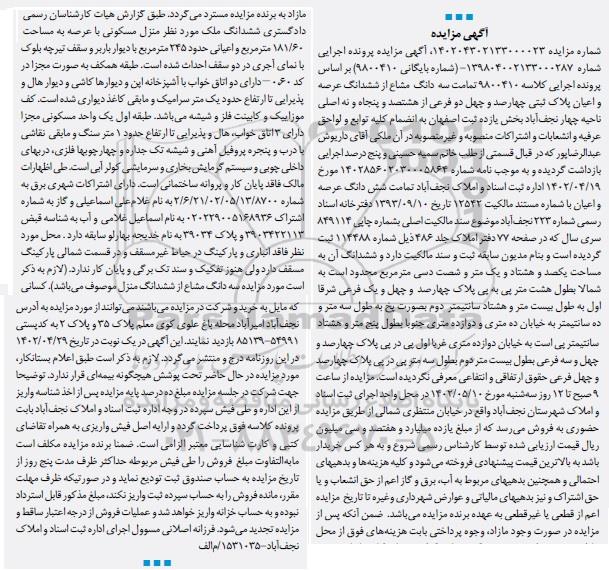 آگهی مزایده
شماره مزایده ۱۴۰۲۰۴۳۰۲۱۳۳۰۰۰۰۲۳، آگهی مزایده پرونده اجرایی
شماره ۱۳۹۸۰۴۰۰۲۱۳۳۰۰۰۲۸۷- (شماره بایگانی ۹۸۰۰۴۱۰) بر اساس
پرونده اجرایی کلاسه ۹۸۰۰۴۱۰ تمامت سه دانگ مشاع از ششدانگ عرصه
و اعیان پلاک ثبتی چهارصد و چهل دو فرعی از هشتصد و پنجاه و نه اصلی
ناحیه چهار نجف‌آباد بخش یازده ثبت اصفهان به انضمام کلیه توابع و لواحق
عرفیه و انشعابات و اشتراکات منصوبه و غیرمنصوبه در آن ملکی آقای داریوش
عبدالرضاپور که در قبال قسمتی از طلب خانم سمیه حسینی و پنج درصد اجرایی
بازداشت گردیده و به موجب نامه شماره ۱۴۰۲۸۵۶۰۲۰۳۰۰۰۵۸۶۴ مورخ
۱۴۰۲/۰۴/۱۹ اداره ثبت اسناد و املاک نجف‌آباد تمامت شش دانگ عرصه
و اعیان با شماره مستند مالکیت ۱۲۵۴۲ تاریخ ۱۳۹۳/۰۹/۱۰ دفترخانه اسناد
رسمی شماره ۲۲۳ نجف‌آباد موضوع سند مالکیت اصلی بشماره چاپی ۸۴۹۱۱۴
سری سال که در صفحه ۷۷ دفتر املاک جلد ۴۸۶ ذیل شماره ۱۱۴۴۸۸ ثبت
گردیده است و بنام مدیون سابقه ثبت و سند مالکیت دارد و ششدانگ آن به
مساحت یکصد و هشتاد و یک متر و شصت دسی مترمربع محدود است به
شمالا بطول هشت متر پی به پی پلاک چهارصد و چهل و یک فرعی شرقا
اول به طول بیست متر و هشتاد سانتیمتر دوم بصورت پخ به طول سه متر و
ده سانتیمتر به خیابان ده متری و دوازده متری جنوبا بطول پنج متر و هشتاد
سانتیمتر پی است به خیابان دوازده متری غربا اول پی در پی پلاک چهارصد و
چهل و سه فرعی بطول بیست متر دوم بطول سه متر پی در پی پلاک چهارصد
و چهل فرعی حقوق ارتفاقی و انتفاعی معرفی نگردیده است. مزایده از ساعت
۹ صبح تا ۱۲ روز سه‌شنبه مورخ ۱۴۰۲/۰۵/۱۰ در محل واحد اجرای ثبت اسناد
و املاک شهرستان نجف‌آباد واقع در خیابان منتظری شمالی از طریق مزایده
حضوری به فروش می‌رسد که از مبلغ یازده میلیارد و هفتصد و سی میلیون
ریال قیمت ارزیابی شده توسط کارشناس رسمی شروع و به هر کس خریدار
باشد به بالاترین قیمت پیشنهادی فروخته می‌شود و کلیه هزینه‌ها و بدهیهای
احتمالی و همچنین بدهیهای مربوط به آب، برق و گاز اعم از حق انشعاب و یا
حق اشتراک و نیز بدهیهای مالیاتی و عوارض شهرداری وغیره تا تاریخ مزایده
اعم از قطعی یا غیرقطعی به عهده برنده مزایده می‌باشد. ضمن آنکه پس از
مزایده در صورت وجود مازاد، وجوه پرداختی بابت هزینه‌های فوق از محل
مازاد به برنده مزایده مسترد می‌گردد. طبق گزارش هیات کارشناسان رسمی
دادگستری ششدانگ ملک مورد نظر منزل مسکونی با عرصه به مساحت
۱۸۱/۶۰ مترمربع و اعیانی حدود ۲۴۵ مترمربع با دیوار باربر و سقف تیرچه بلوک
با نمای آجری در دو سقف احداث شده است. طبقه همکف به صورت مجزا در
کد ۰.۶۰- دارای دو اتاق خواب با آشپزخانه اپن و دیوارها کاشی و دیوار هال و
پذیرایی تا ارتفاع حدود یک متر سرامیک و مابقی کاغذ دیواری شده است. کف
موزاییک و کابینت فلز و شیشه می‌باشد. طبقه اول یک واحد مسکونی مجزا
دارای ۳ اتاق خواب، هال و پذیرایی تا ارتفاع حدود ۱ متر سنگ و مابقی نقاشی
با درب و پنجره پروفیل آهنی و شیشه تک جداره و چهارچوبها فلزی، دربهای
داخلی چوبی و سیستم گرمایش بخاری و سرمایشی کولر آبی است. طی اظهارات
مالک فاقد پایان کار و پروانه ساختمانی است. دارای اشتراکات شهری برق به
شماره ۲/۶/۲۱/۰۲/۰۵/۱۳/۸۷۰۰ به نام غلام‌علی اسماعیلی و گاز به شماره
اشتراک ۰۲۰۲۲۹۰۰۵۱۶۸۹۳۶ به نام اسماعیل غلامی و آب به شناسه قبض
۳۹۰۳۴۲۲۱۱۳ و پلاک ۳۹۰۳۴ به نام خدیجه بهارلو سابقه دارد . محل مورد
نظر فاقد انباری و پارکینگ در حیاط غیرمسقف و در قسمت شمالی پارکینگ
مسقف دارد ولی هنوز تفکیک و سند تک برگی و پایان کار ندارد. (لازم به ذکر
است مورد مزایده سه دانگ مشاع از ششدانگ منزل موصوف می‌باشد). کسانی
که مایل به خرید و شرکت در مزایده می‌باشند می‌توانند از مورد مزایده به آدرس
نجف‌آباد امیرآباد محله باغ علوی کوی معلم پلاک ۳۵ و پلاک ۲ به کدپستی
۸۵۱۳۹-۵۴۹۹۱ بازدید نمایند. این آگهی در یک نوبت در تاریخ ۱۴۰۲/۰۴/۲۹
در این روزنامه درج و منتشر می‌گردد. لازم به ذکر است طبق اعلام بستانکار،
مورد مزایده در حال حاضر تحت پوشش هیچگونه بیمه‌ای قرار ندارد. توضیحا
جهت شرکت در جلسه مزایده مبلغ ده درصد پایه مزایده پس از اخذ شناسه واریز
از این اداره و طی فیش سپرده در وجه اداره ثبت اسناد و املاک نجف‌آباد بابت
پرونده کلاسه فوق پرداخت گردد و ارایه اصل فیش واریزی به همراه تقاضای
کتبی و کارت شناسایی معتبر الزامی است. ضمنا برنده مزایده مکلف است
مابه‌التفاوت مبلغ فروش را طی فیش مربوطه حداکثر ظرف مدت پنج روز از
تاریخ مزایده به حساب صندوق ثبت تودیع نماید و در صورتیکه ظرف مهلت
مقرر، مانده فروش را به حساب سپرده ثبت واریز نکند، مبلغ مذکور قابل استرداد
نبوده و به حساب خزانه واریز خواهد شد و عملیات فروش از درجه اعتبار ساقط و
مزایده تجدید می‌شود. فرزانه اصلانی مسوول اجرای اداره ثبت اسناد و املاک
نجف‌آباد-۱۵۳۱۰۳۵/م‌الف